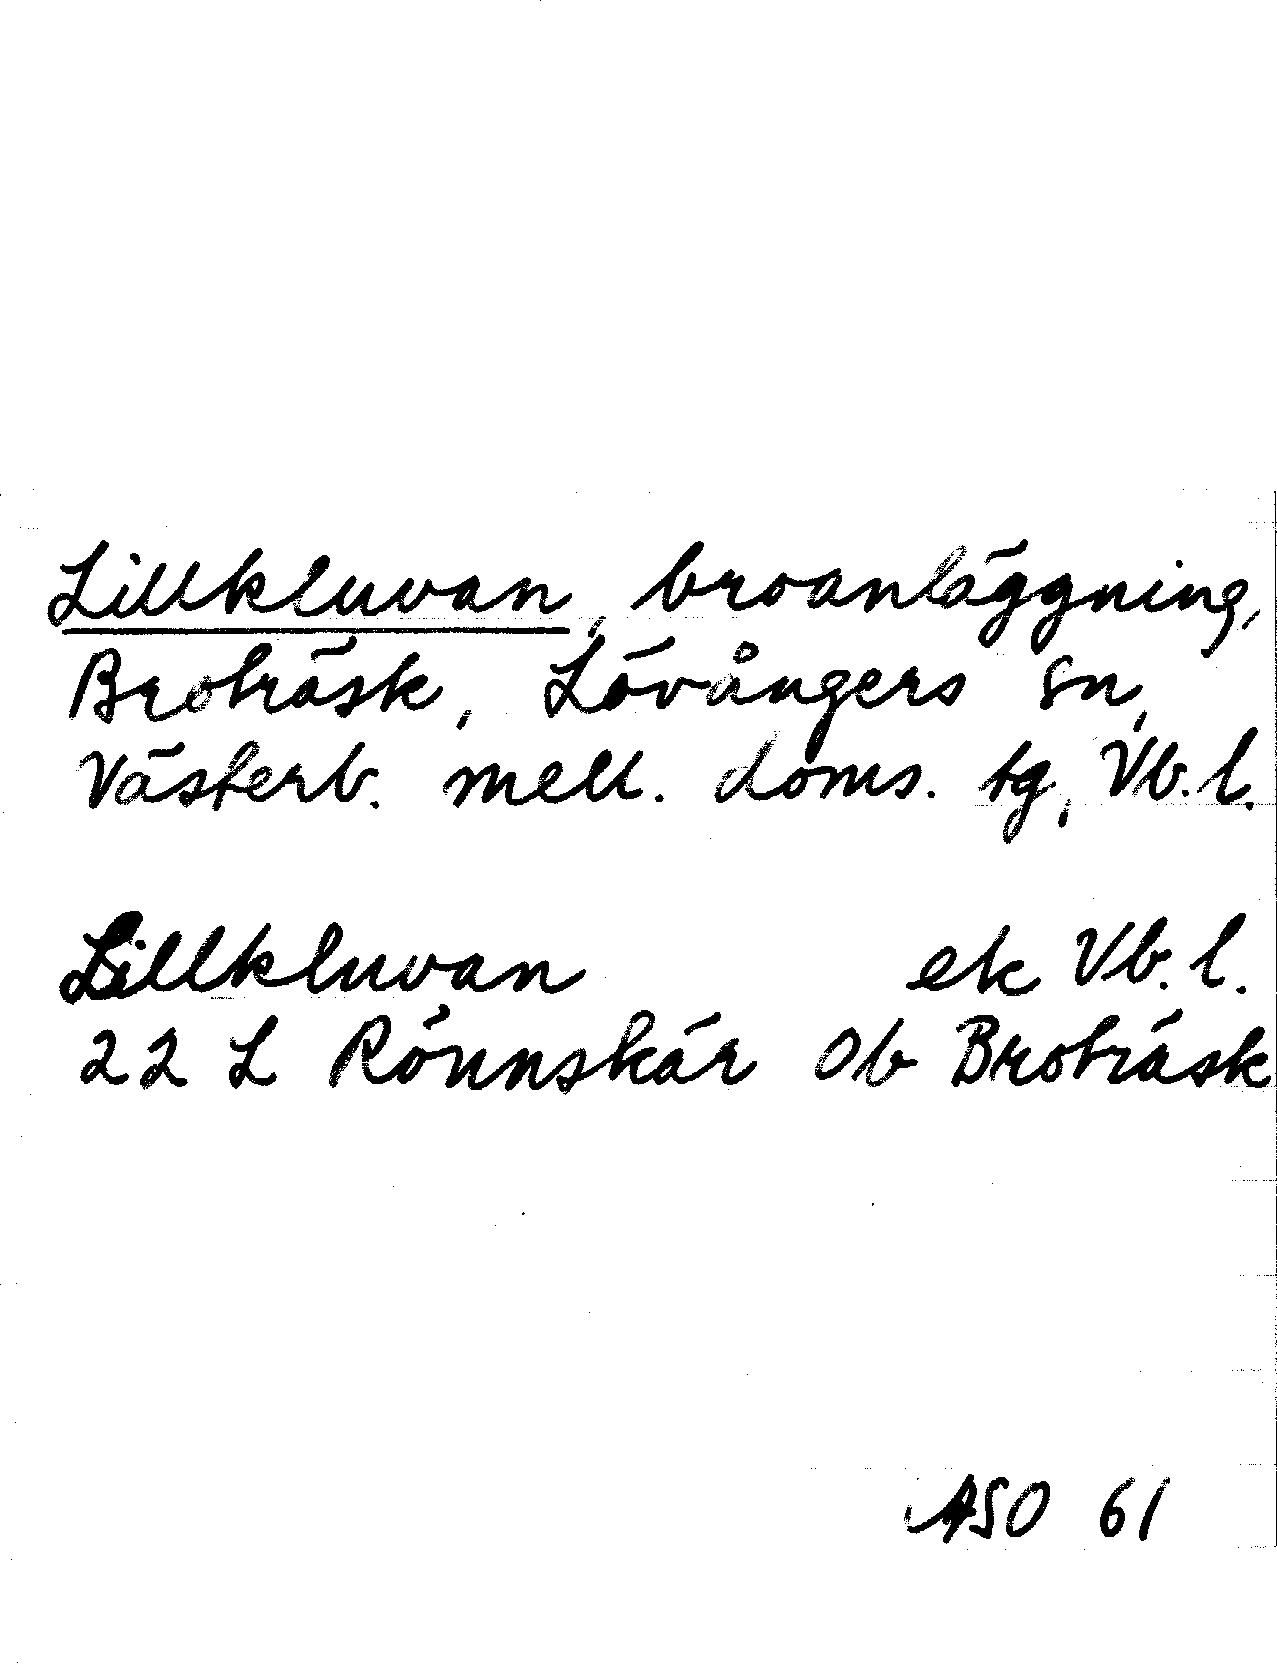 Lillkluvan, broanläggning,
Broträsk, Lövångers sn,
Västerb. mell. doms. tg, Vb. l.
Lillkluvan ek Vb. l.
22 L Rönnskär Ob Broträsk
ASO 61